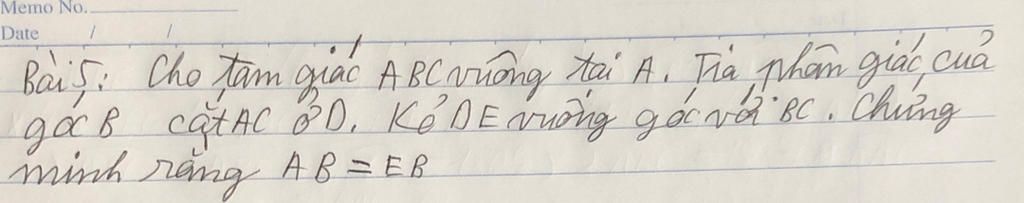 Memo No.
Date / /
Bài 5: Cho tam giác ABC vuông tại A. Tia phân giác của
góc B cắt AC ở D. Kẻ DE vuông góc với BC. Chứng
minh rằng AB = EB